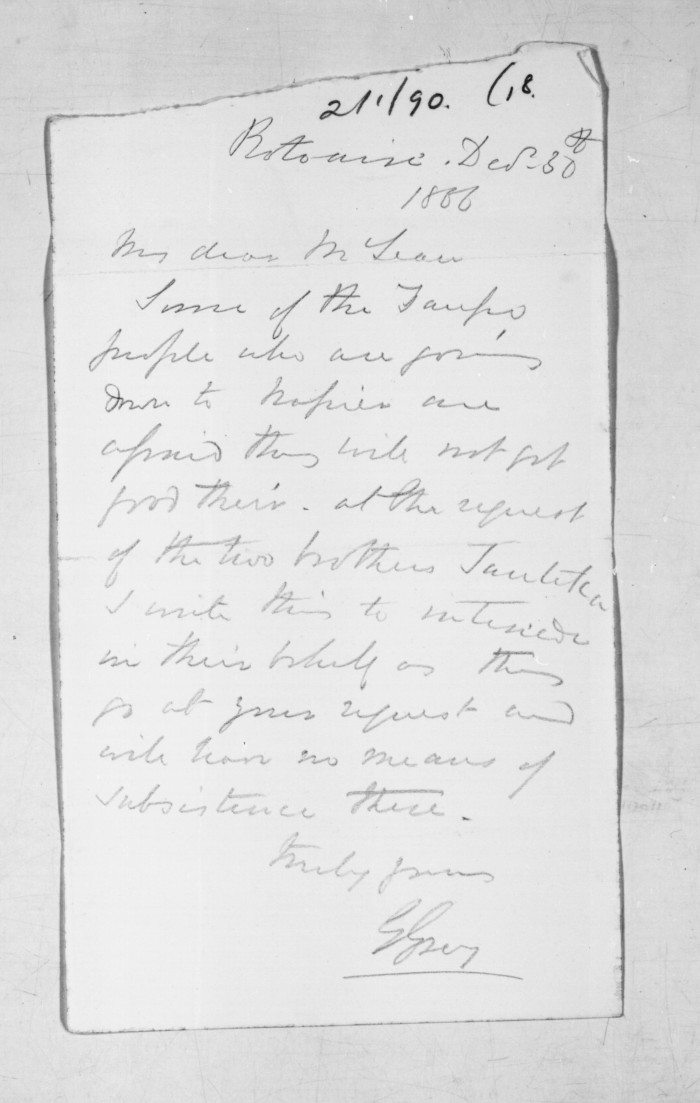 2/1/90. (18.
Rotoaira. Decr. 30th
1866
My dear McLean
Some of the Taupo
people who are going
down to Napier are
afraid they will not get
food there. at the request
of the two brothers
I write this to intercede
in their behalf as they
go at your request and
will have no means of
subsistence there.
truly yours
G Grey